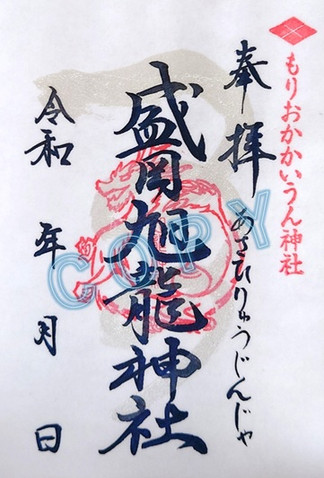 もりおかかいうん神社
奉拝
あさひりゅうじんじゃ
盛岡旭龍神社
令和 年 月 日
COPY